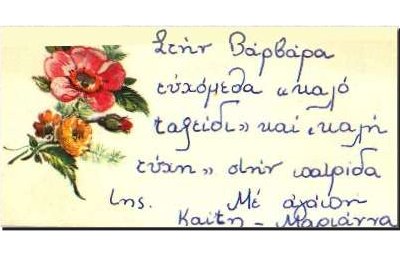 Στήν Βάρβαρα
εὐχόμεθα «καλό
ταξείδι» καί «καλή
τύχη» στήν πατρίδα
της. Μέ ἀγάπη
Καίτη - Μαριάννα